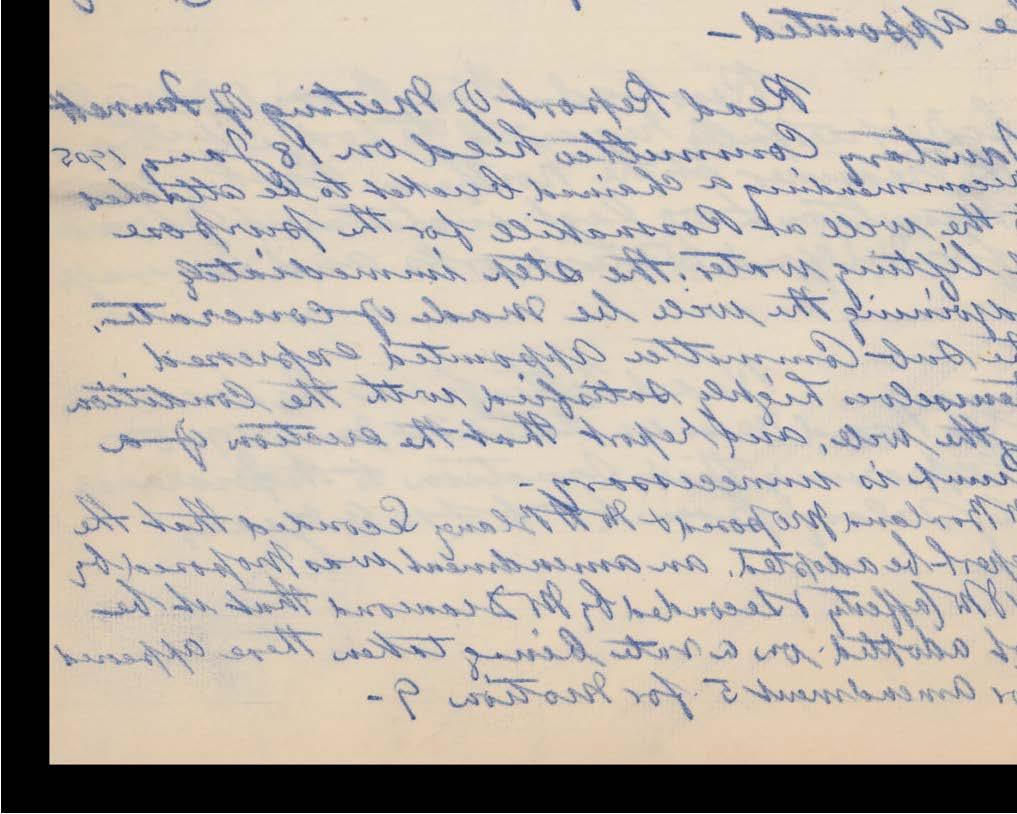 e appointed –
Read Report of Meeting of Fannett
anitary Committee held on 18 Jany 1905
recommending a chained bucket to be attached
the well at Rosnakill for the purpose
lifting water, the step immediately
djoining the well be made of concrete.
e Sub-Committee appointed expressed
emselves highly satisfied with the Condition
the well, and report that the erection of a
ump is unnecessary –
Borland proposed & Mr Blaney Seconded that the
eport be adopted, an amendment was proposed by
McCafferty & seconded by Mr Diamond that it be
t adopted on a vote being taken there appeared
or amendment 5 for Motion 9 –